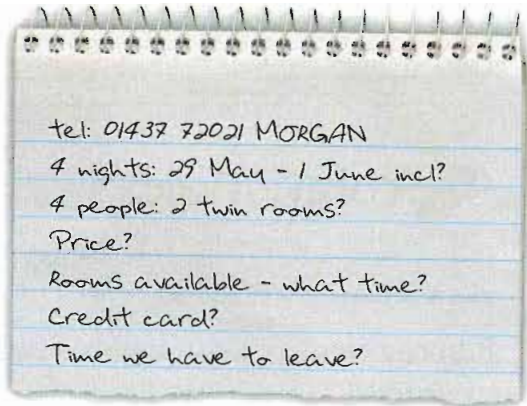 tel: 01437 72021 MORGAN
4 nights: 29 May - 1 June incl?
4 people: 2 twin rooms?
Price?
Rooms available - what time?
Credit card?
Time we have to leave?